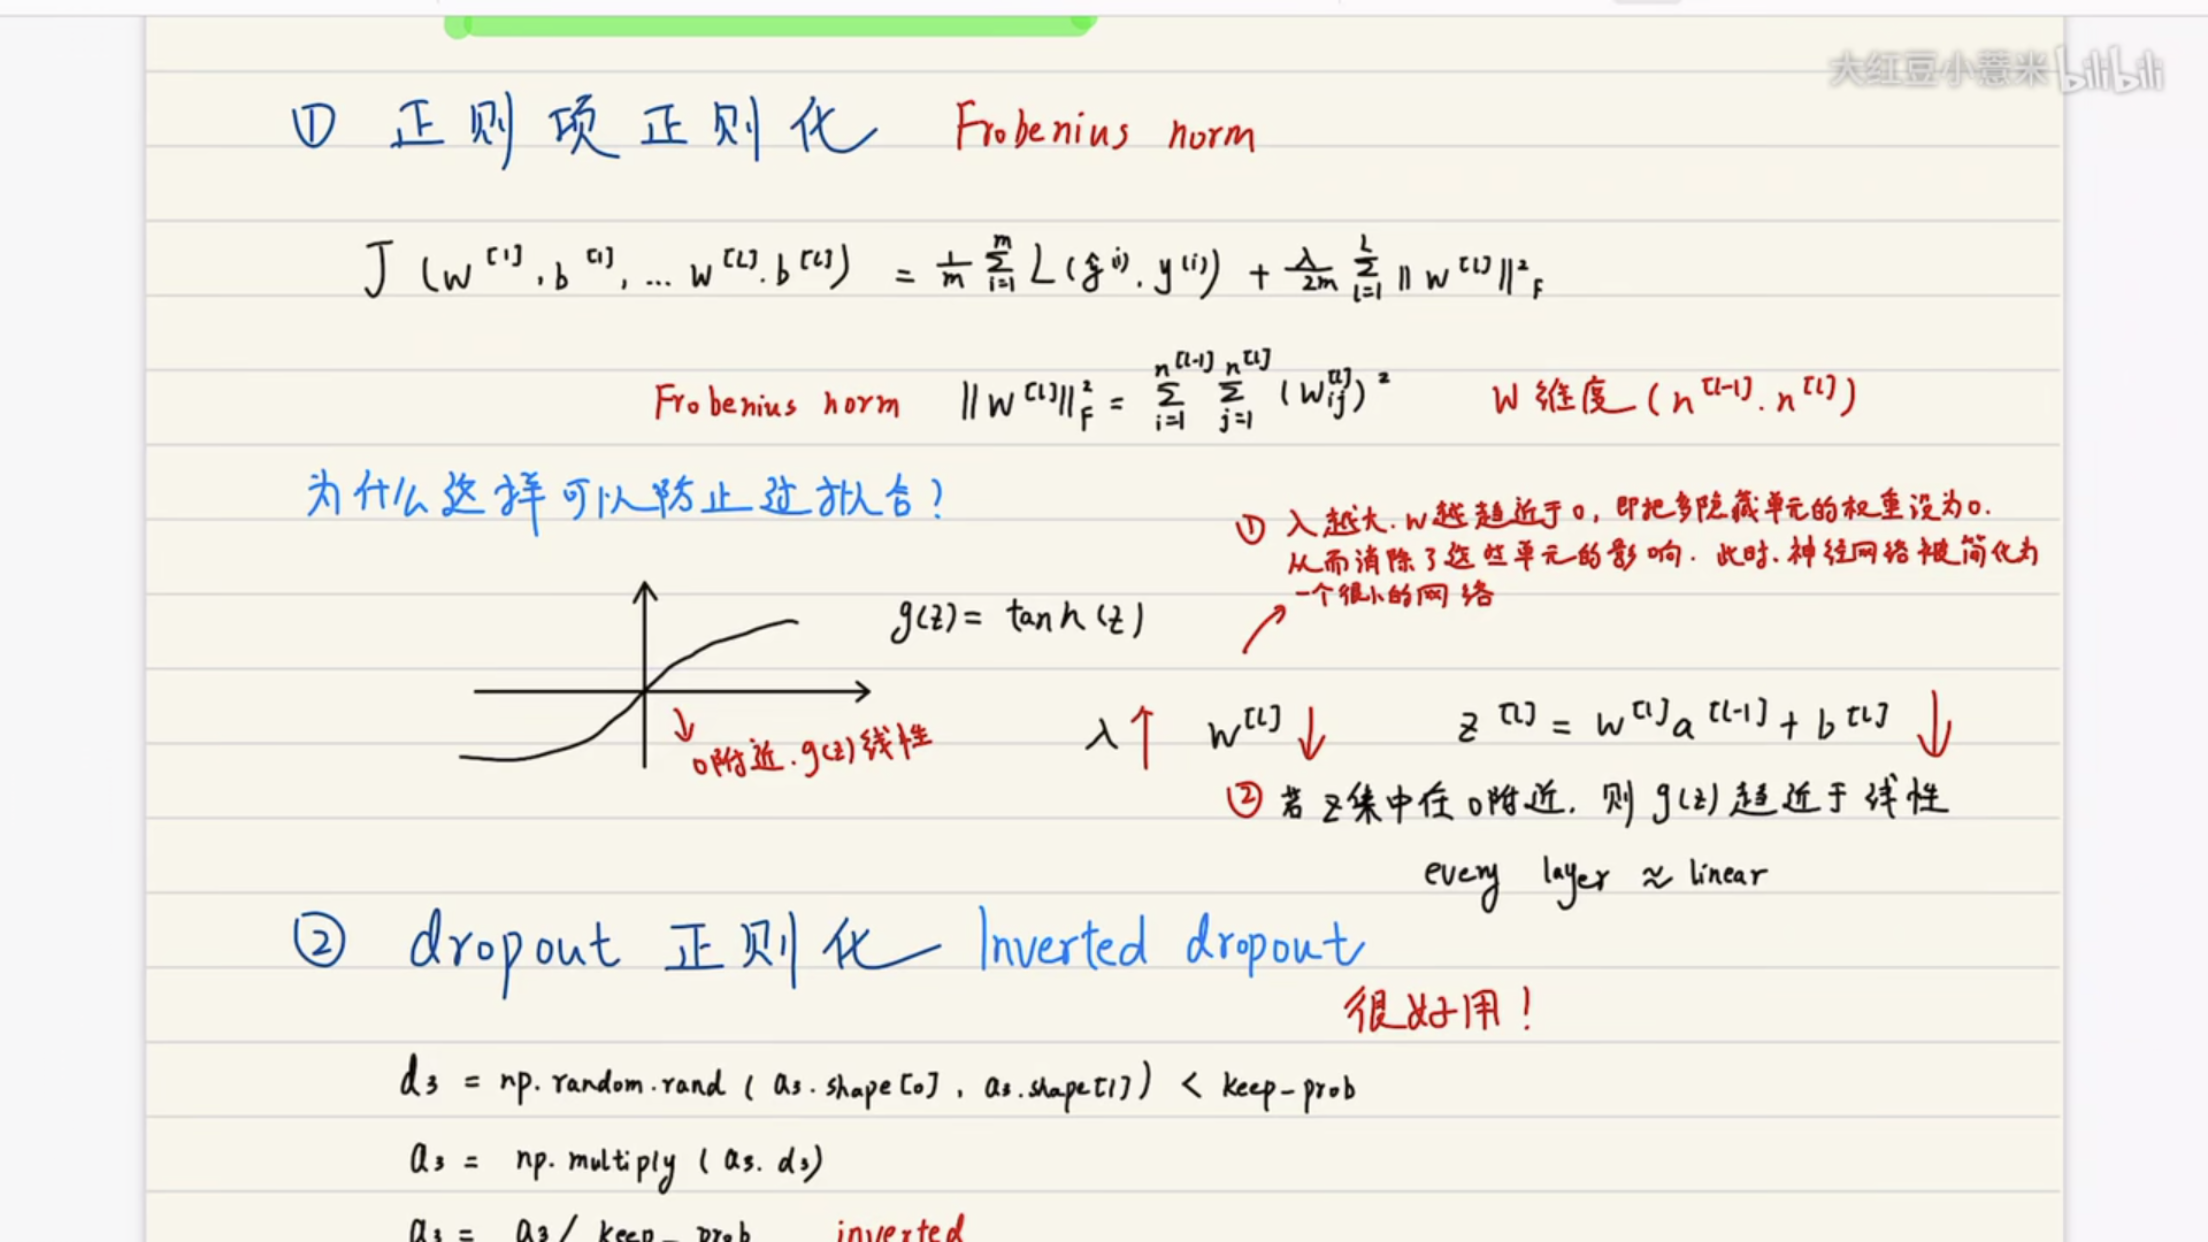 大红豆小薏米 bilibili
① 正则项正则化 Frobenius norm
J (w^[1], b^[1], ... w^[L], b^[L]) = 1/m Σ_{i=1}^{m} L(ŷ^(i), y^(i)) + λ/2m Σ_{l=1}^{L} ‖w^[l]‖²_F
Frobenius norm ‖w^[l]‖²_F = Σ_{i=1}^{n^[l-1]} Σ_{j=1}^{n^[l]} (w_ij^[l])² W维度(n^[l-1], n^[l])
为什么这样可以防止过拟合?
① 入越大, w越趋近于0, 即把多隐藏单元的权重设为0.
从而消除了这些单元的影响. 此时, 神经网络被简化为
一个很小的网络
g(z) = tanh(z)
0附近, g(z)线性
λ↑ w^[l]↓ z^[l] = w^[l]a^[l-1] + b^[l] ↓
② 若z集中在0附近, 则g(z)趋近于线性
every layer ≈ linear
② dropout 正则化 Inverted dropout
很好用!
d3 = np.random.rand(a3.shape[0], a3.shape[1]) < keep-prob
a3 = np.multiply(a3, d3)
a3 = a3/keep-prob inverted